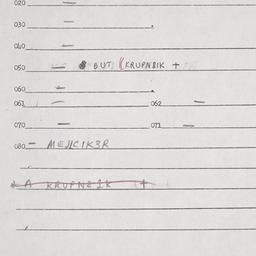 020 —
030 —
040 —
050 — BUT (KRUPNSIK +
060 —
061 — 062 —
070 — 071 —
080 — MEJLCIK3R
A KRUPNE2K +